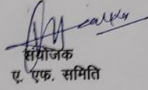 संयोजक
ए. एफ. समिति